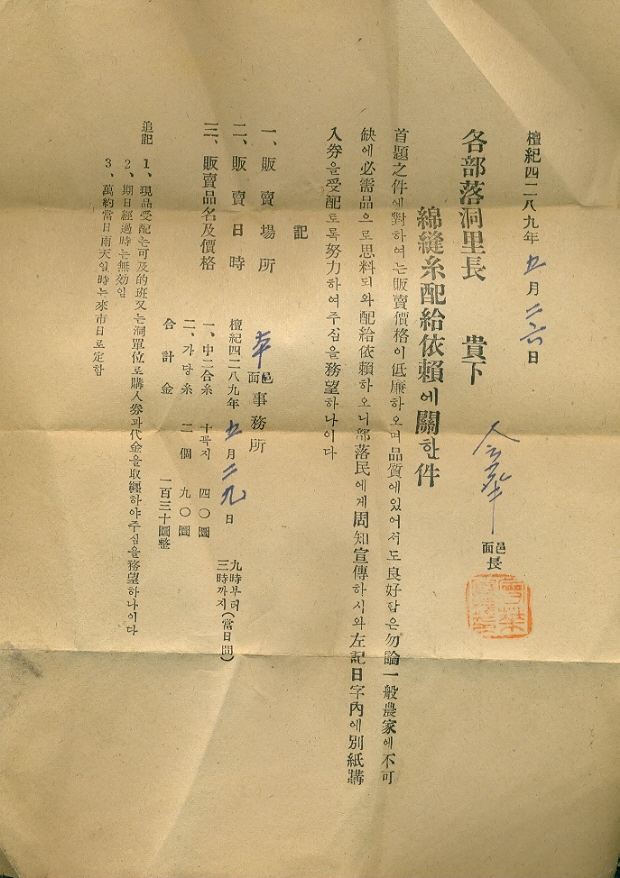 檀紀四二八九年 五月二六日
面邑長
各部落洞里長 貴下
綿縫糸配給依賴에關한件
首題之件에對하여는販賣價格이低廉하오며品質에있어서도良好함은勿論一般農家에不可
缺에必需品으로思料되와配給依賴하오니部落民에게周知宣傳하시와左記日字內에別紙購
入券을受配토록努力하여주심을務望하나이다
記
一、販賣場所 本面邑事務所
二、販賣日時 檀紀四二八九年五月二九日 九時부터三時까지(當日間)
三、販賣品名及價格 一、中二合糸 十꼭지 四〇圜
二、가당糸 二個 九〇圜
合計金 一百三十圜整
追記 1、現品受配는可及的班又는洞單位로購入券과代金을取纒하야주심을務望하나이다
2、期日經過時는無効임
3、萬約當日雨天일時는來市日로定함